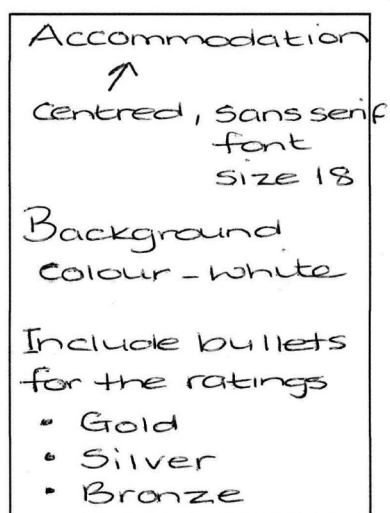 Accommodation
Centred, sans serif
font
size 18
Background
colour - white
Include bullets
for the ratings
• Gold
• Silver
• Bronze